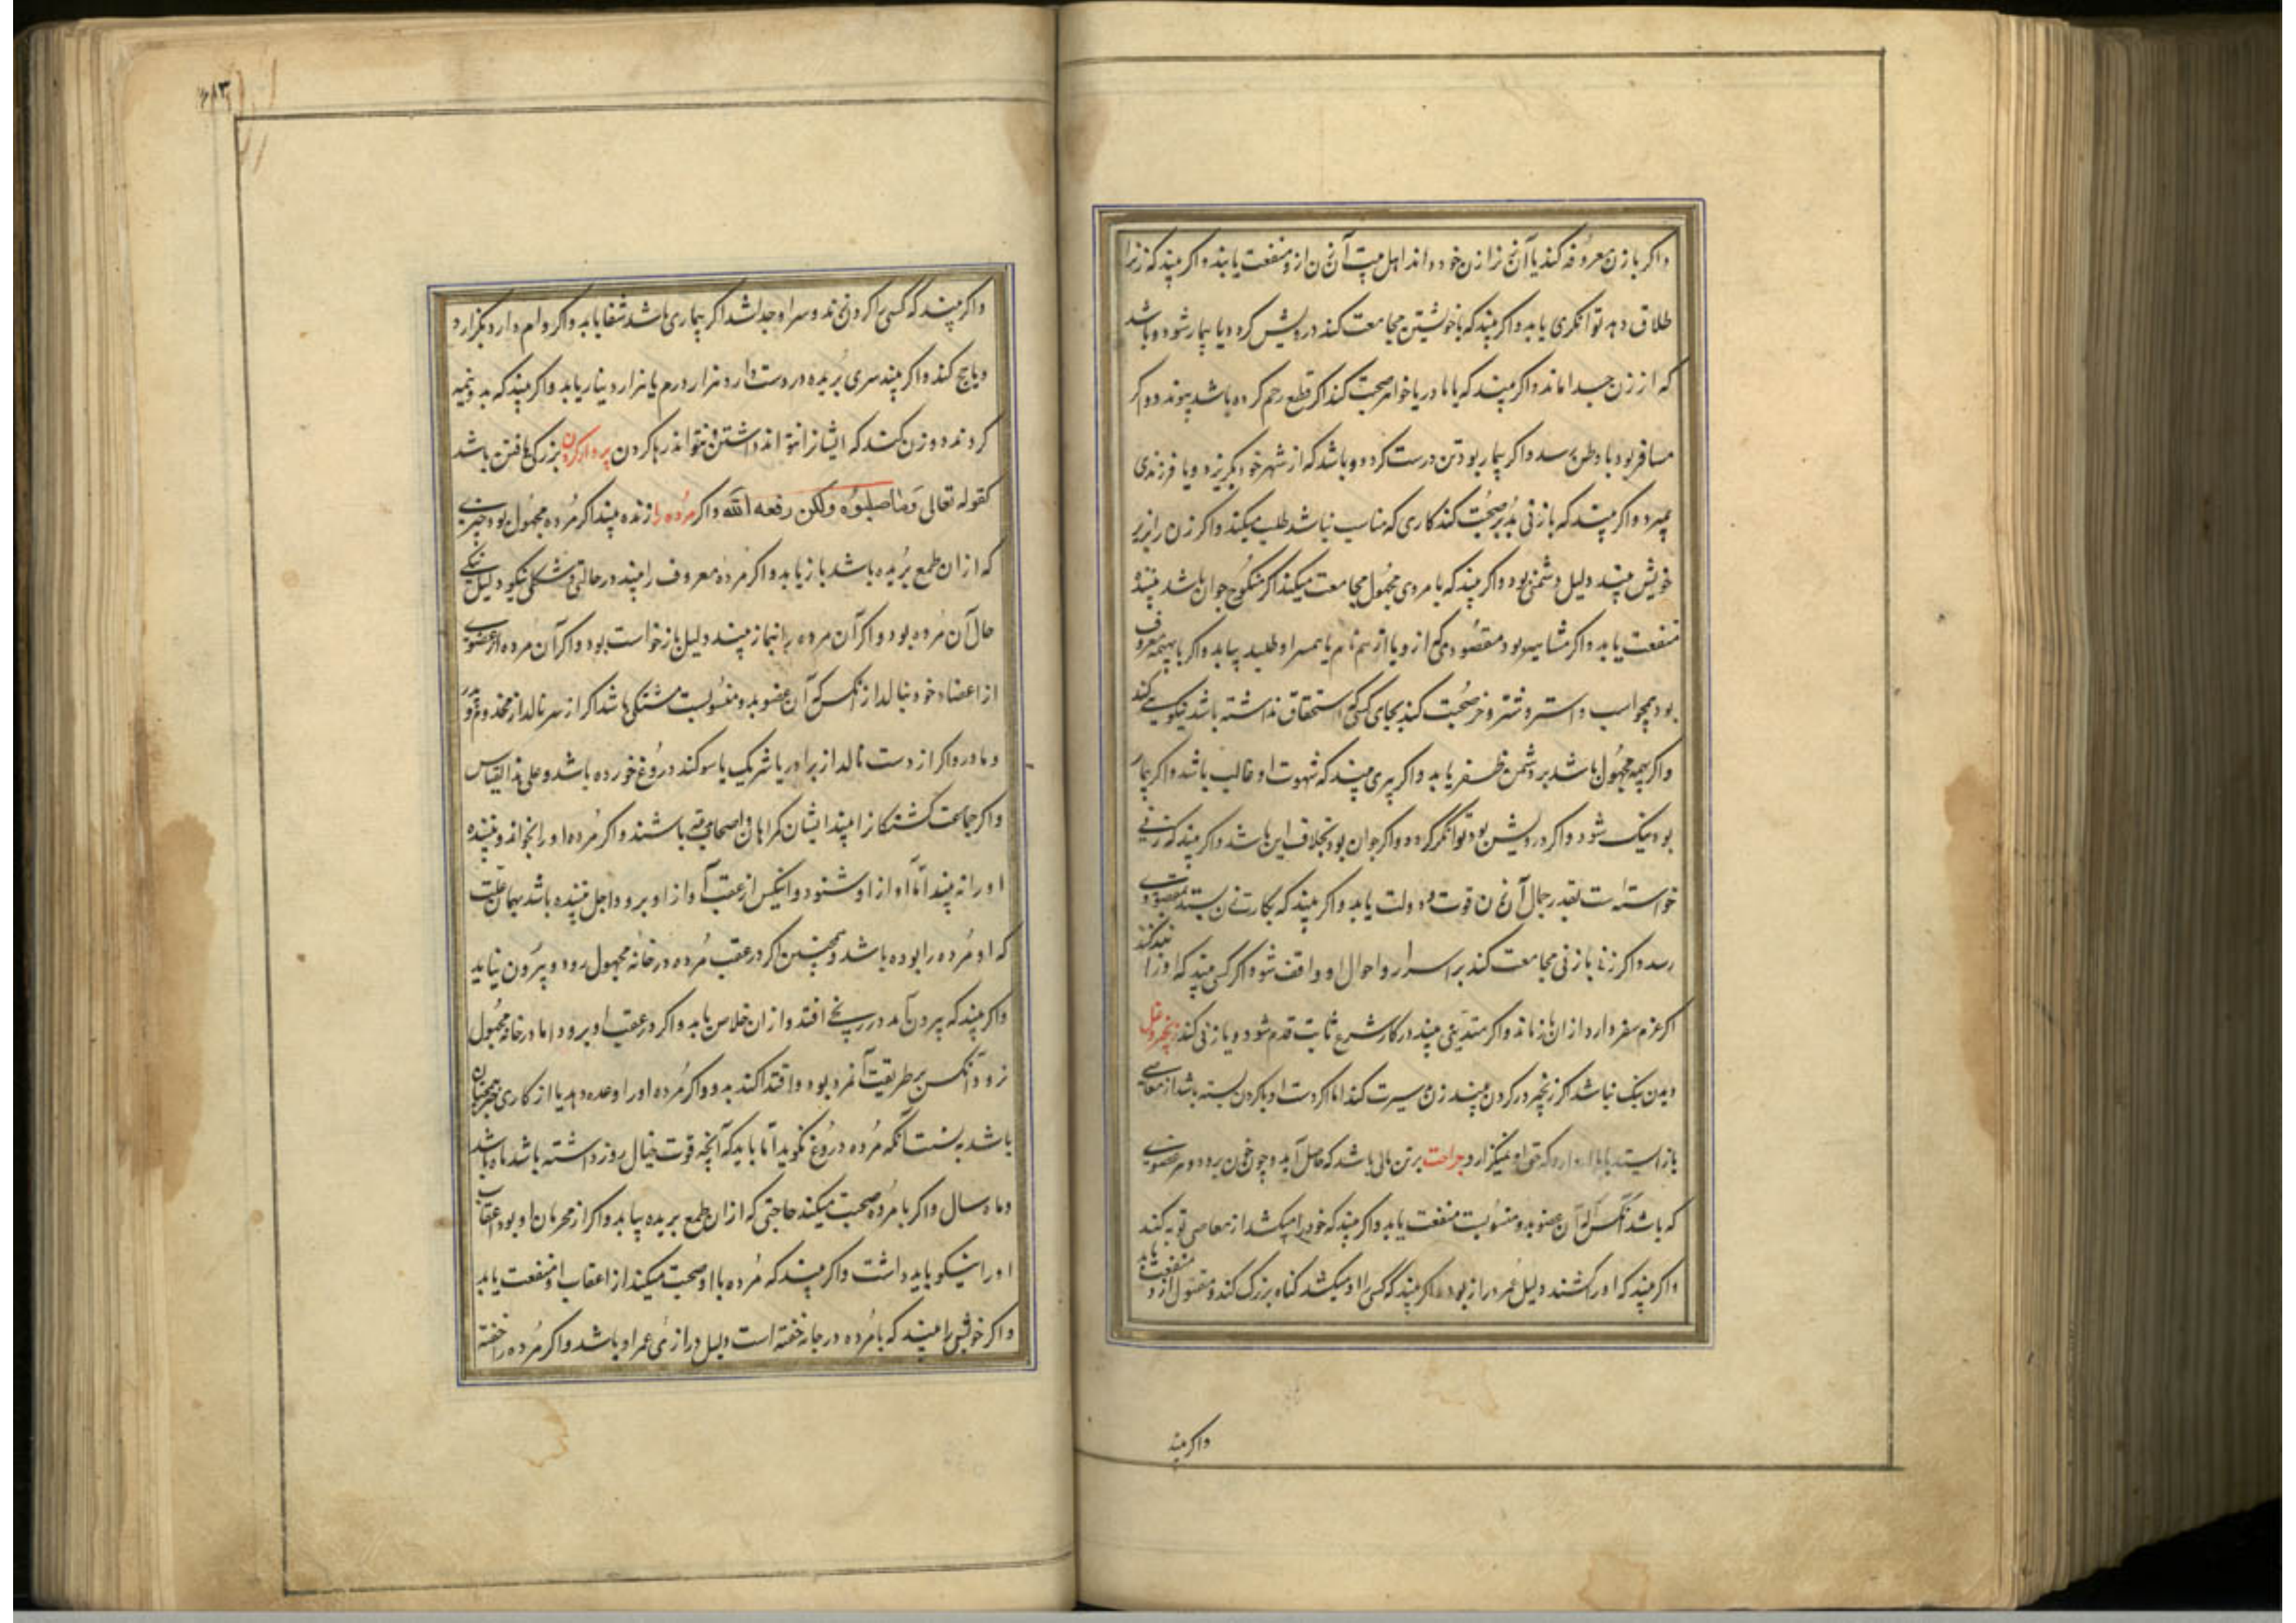 واکر بازن معروفه کند یا آن زن از زن خود داند اهل بیت آن زن ازو منفعت یابند واکر بیند که زنرا
طلاق دهد توانکری یابد واکر بیند که باخویشتن مجامعت کند درویش کردد یا بیمار شود و باشد
که از زن جدا ماند واکر بیند که با مادر یا خواهر صحبت کند اکر قطع رحم کرده باشد بپیوندد و اکر
مسافر بود با وطن رسد واکر بیمار بود تن درست کردد و باشد که از شهر خود بکریزد و یا فرزندی
بمیرد واکر بیند که با زنی بدبر صحبت کند کاری که مناسب نباشد طلب میکند واکر زن را بزیر
خویش بیند دلیل دشمنی بود واکر بیند که با مردی مجهول مجامعت میکند اکر منکوح جوان باشد بیننده
منفعت یابد واکر مشاهیر بود مقصودی که ازو یا از هم نام یا همسر او طلبد بیابد واکر با بهیمه معروف
بود همچو اسب و استر و شتر و خر صحبت کند بجای کسی که استحقاق نداشته باشد نیکویی کند
واکر بهیمه مجهول باشد بر دشمن ظفر یابد واکر پیری بیند که شهوت او غالب باشد واکر بیمار
بود نیک شود واکر درویش بود توانکر کردد واکر جوان بود بخلاف این باشد واکر بیند که زنی
خواسته است بقدر جمال آن زن قوت و دولت یابد واکر بیند که بکارت زن بستد بمقصودی
رسد واکر زنی با زنی مجامعت کند بر اسرار و احوال او واقف شود واکر کسی بیند که او را بند کنند
اکر عزم سفر دارد از ان باز ماند واکر متدینی بیند در کار شرع ثابت قدم شود و یا زنی کند زنجیر و غل
دیدن نیک نباشد اکر زنجیر در کردن بیند زن بد سیرت کند اما اکر دست او با کردن بسته باشد از معاصی
باز ایستد یا مال دارد که حق او نمیکزارد جراحت بر تن مالی باشد که حاصل آید و چون خون برود و هر عضوی
که باشد آنکس که آن عضو بدو منسوبست منفعت یابد واکر بیند که خود را میکشد از معاصی توبه کند
واکر بیند که اورا کشتند دلیل عمر دراز بود واکر بیند که کسی را او میکشد کناه بزرک کند و مقتول ازو منفعت یابد
واکر بیند
۶۸۳
واکر بیند که کسی را کردن زدند و سر او جدا شد اکر بیماری باشد شفا یابد واکر وام دارد بکزارد
و یا حج کند واکر بیند سری بریده در دست دارد هزار درم یا هزار دینار یابد واکر بیند که بدو نیمه
کردند دو زن کند که ایشانرا نتواند داشتن و نتواند رها کردن بردار کردن بزرکی یافتن باشد
کقوله تعالی وما صلبوه ولکن رفعه الله واکر مرده را زنده بیند اکر مرده مجهول بود چیزی
که از ان طمع بریده باشد باز یابد واکر مرده معروف را بیند در حالتی و شکلی نیکو دلیل نیکی
حال آن مرده بود و اکر آن مرده را بنماز بیند دلیل بازخواست بود واکر آن مرده از عضوی
از اعضاء خود بنالد از آنکس که آن عضو بدو منسوبست مشتکی باشد اکر از سر نالد از مخدوم و پدر
و مادر واکر از دست نالد از برادر یا شریک یا سوکند دروغ خورده باشد و علی هذا القیاس
واکر جماعت کشتکانرا بیند ایشان کمراهان و اصحاب باشند واکر مرده اورا بخواند و بیننده
اورا نه بیند اما آواز او شنود و اینکس از عقب آواز او برود اجل بیننده باشد بهمان علت
که او مرده را بوده باشد و همچنین اکر در عقب مرده در خانه مجهول رود و بیرون نیاید
واکر بیند که بیرون آمد در رنجی افتد و از ان خلاص یابد واکر در عقب او برود اما در خانه مجهول
نرود آنکس بر طریقت آنمرد بود و اقتدا کند بدو واکر مرده اورا وعده دهد یا از کاری خبر همچنان
باشد بنسبت آنکه مرده دروغ نکوید اما باید که آنچه قوت خیال روز داشته باشد ماه باشد
و ماه سال واکر با مرده صحبت میکند حاجتی که از ان طمع بریده بیابد واکر از محرمان او بود اعقاب
اورا نیکو باید داشت واکر بیند که مرده با او صحبت میکند از اعقاب او منفعت یابد
واکر خویشتن را بیند که با مرده در جامه خفته است دلیل درازئ عمر او باشد واکر مرده را خفته